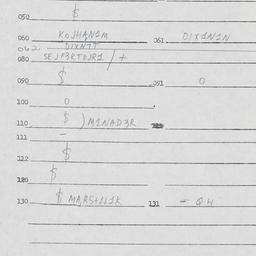 050 $
060 KOJHAN1M 061 DIX1N1N
062 DIXN1T
080 SEJF3RTOJR1 / +
090 $ 091 0
100 0
110 $ ) M1NAD3R
111 -
112 $
120 $
130 $ MARS+1L1K 131 - Q4